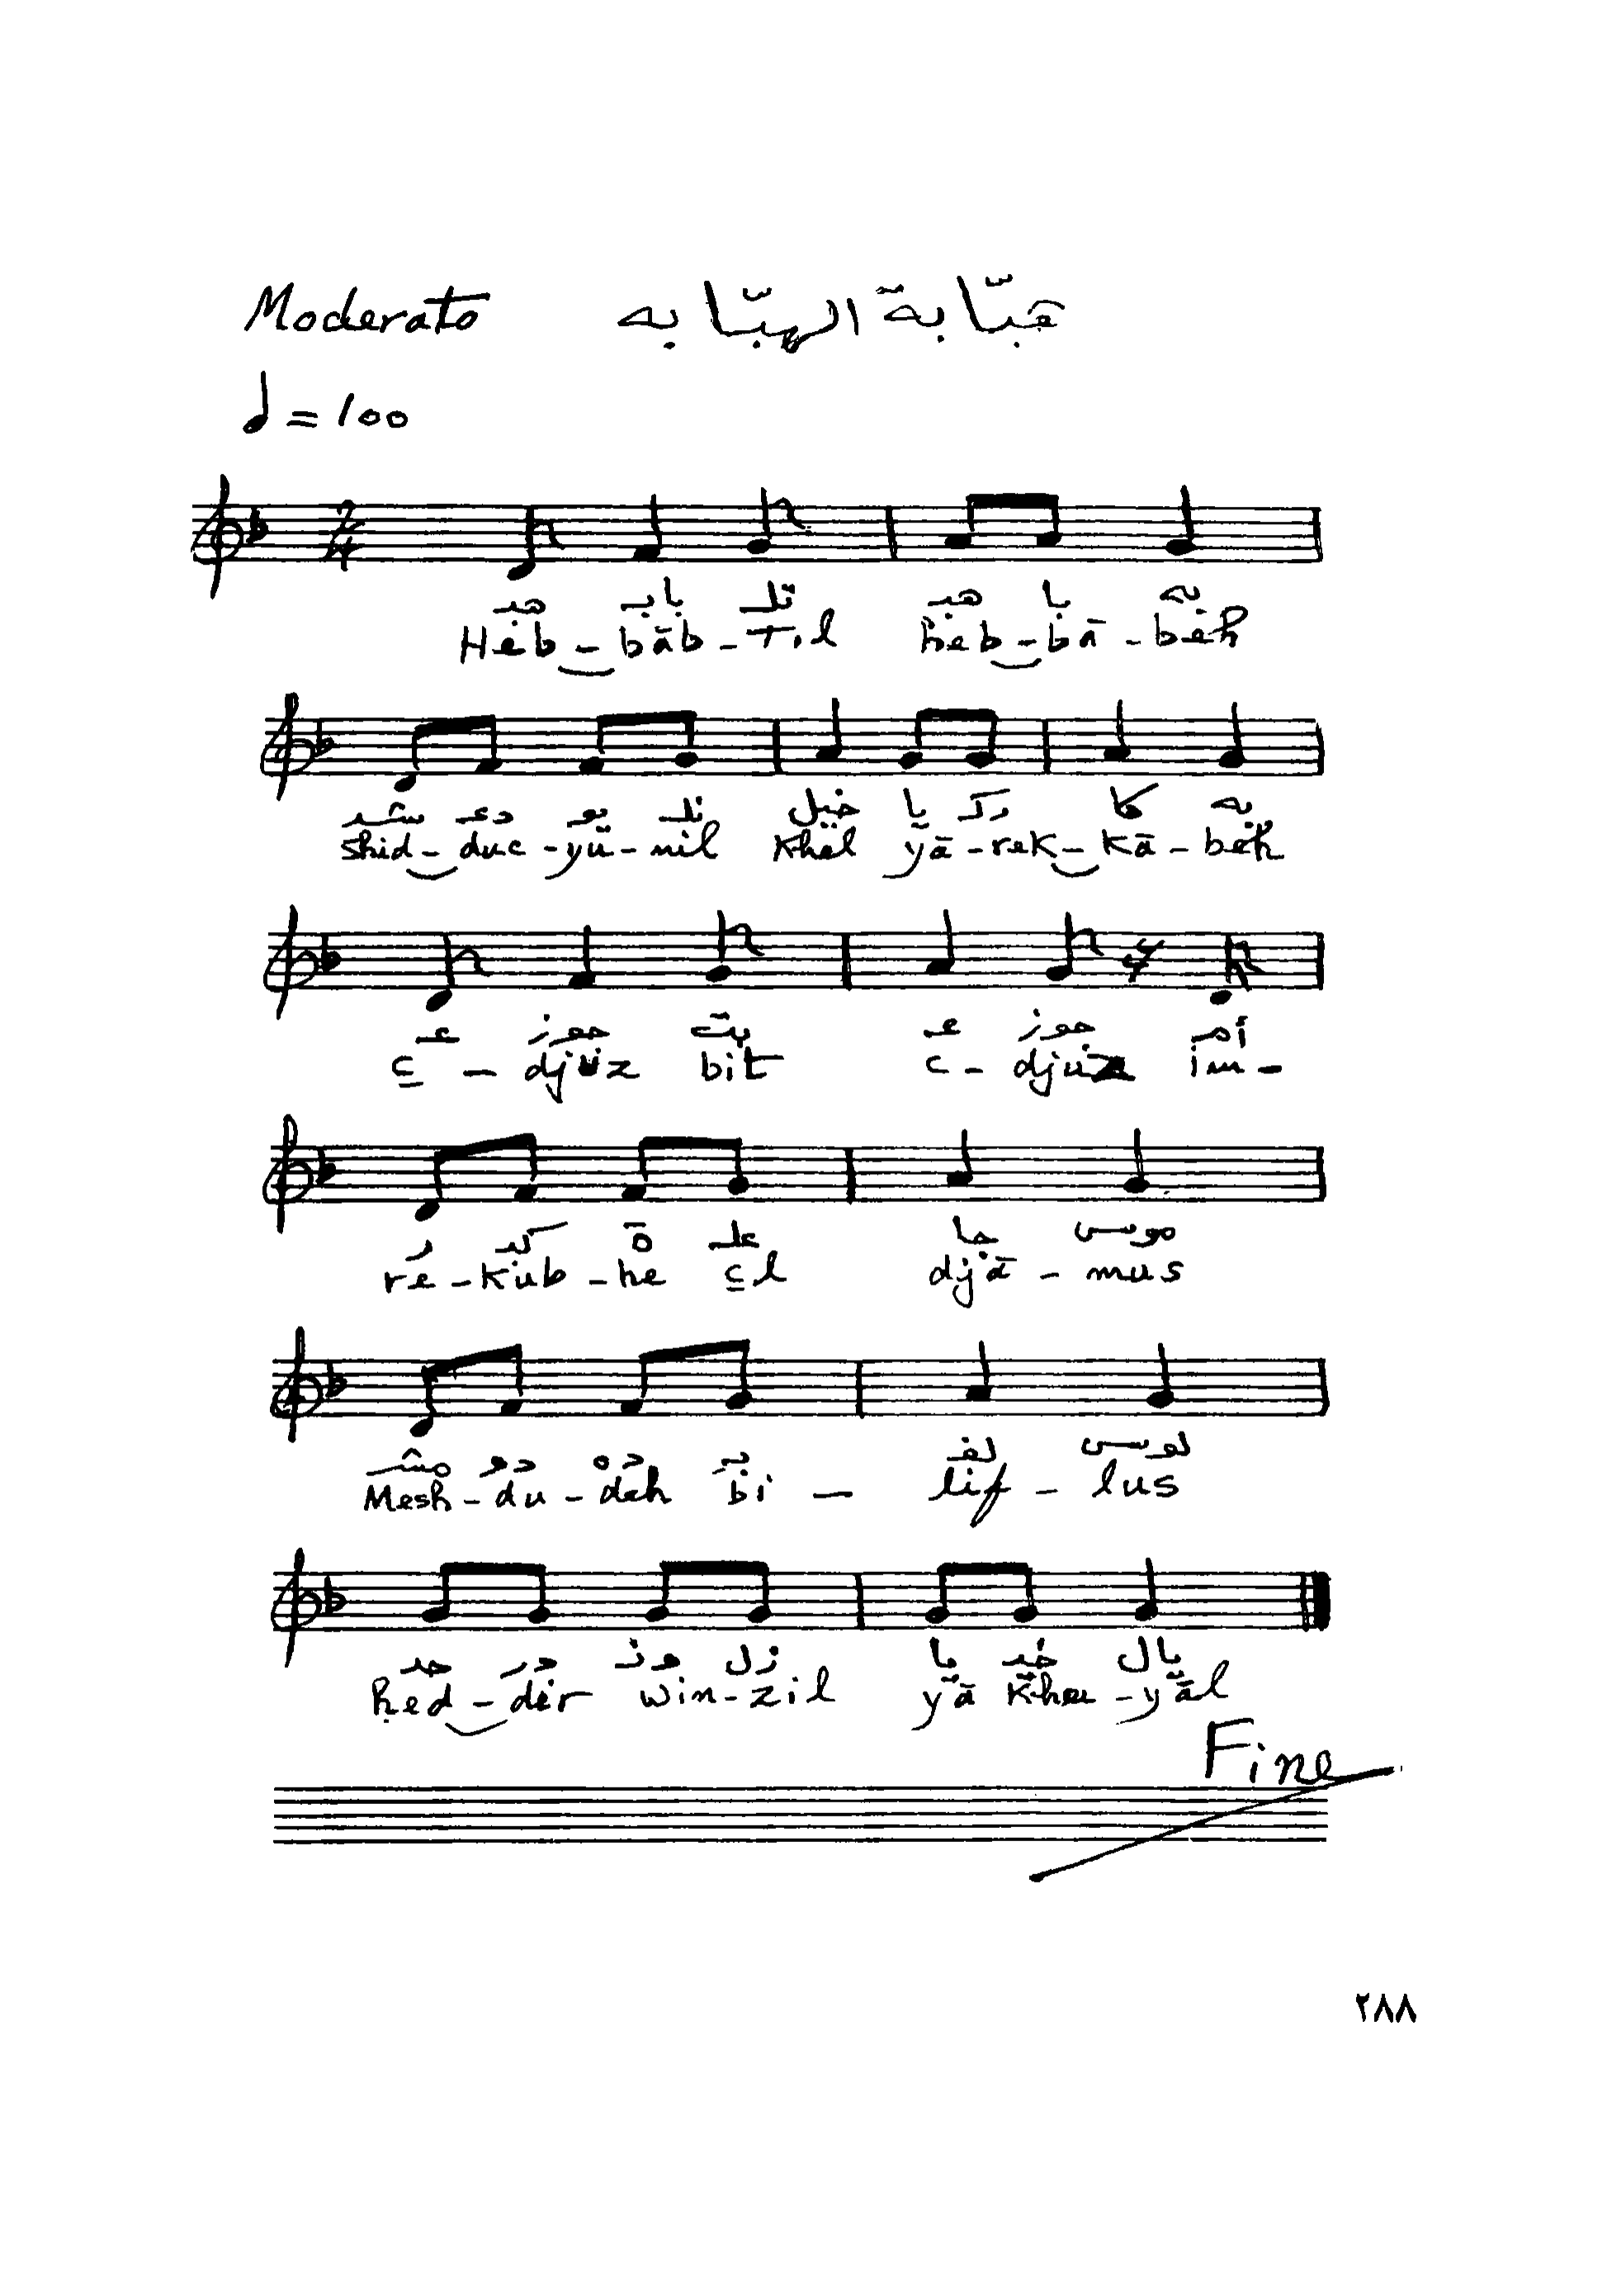 Moderato هبّابة الهبّابه
♩ = 100
2/4
هبـ بابـ تلـ هبـ با به
Heb - bāb - Til heb - bā - beh
شد دعـ يو نلـ خيل يا رك كا به
shid - duc - yu - nil Khel yā - rek - kā - beh
عـ جوز بت عـ جوز أمـ
c - djuz bit c - djuz im -
ر كبـ ة علـ جا موس
re - kub - he cl djā - mus
مشـ دو ده بـ لفـ لوس
Mesh - du - deh bi - lif - lus
حد در ونـ زل يا خيـ يال
ḥed - dir win - zil yā Khei - yāl
Fine
٢٨٨